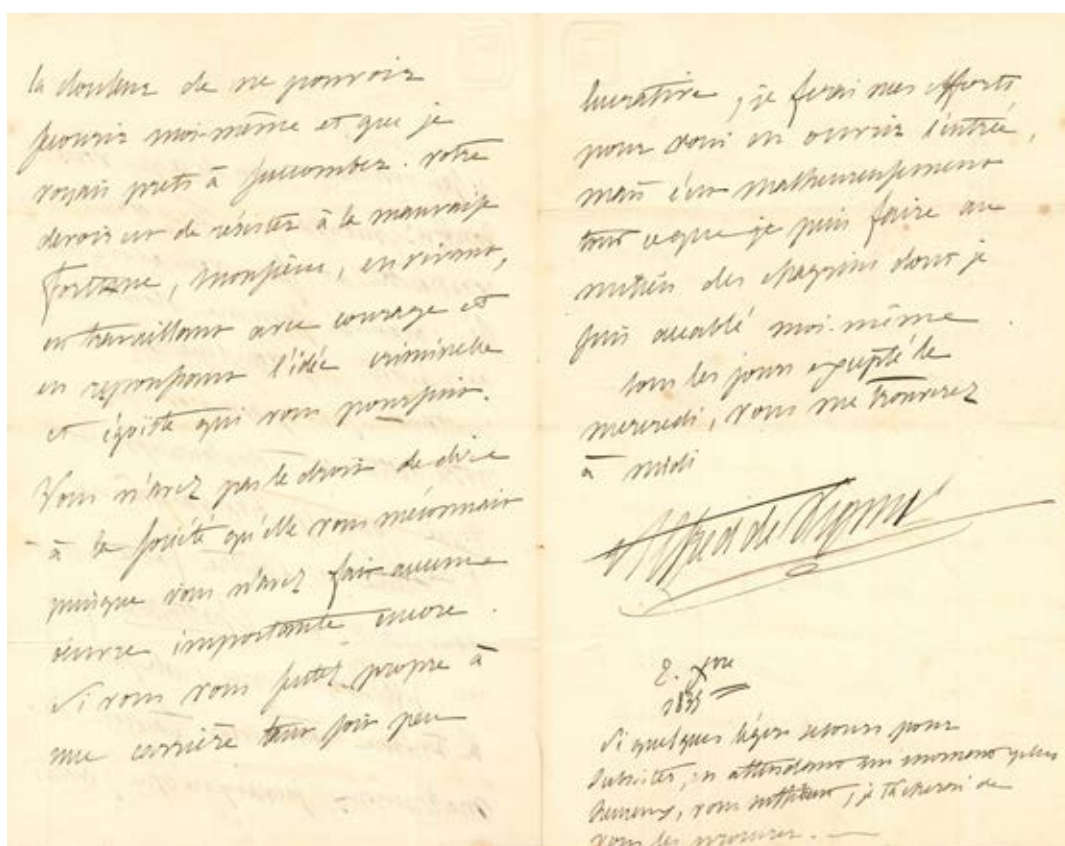 la douleur de ne pouvoir
secourir moi-même et que je
voyais prets à succomber. votre
devoir est de résister à la mauvaise
Fortune, Monsieur, en vivant,
en travaillant avec courage et
en repoussant l'idée criminelle
et égoïste qui vous poursuit.
Vous n'avez pas le droit de dire
à la société qu'elle vous méconnait
puisque vous n'avez fait aucune
œuvre importante encore.
Si vous vous sentez propre à
une carrière tant soit peu
lucrative, je ferai mes efforts
pour vous en ouvrir l'entrée,
mais c'est malheureusement
tout ce que je puis faire au
milieu des chagrins dont je
suis accablé moi-même.
tous les jours excepté le
mercredi, vous me trouverez
à midi
Alfred de Vigny
2. Xbre
1835
Si quelques légers secours pour
subsister, en attendant un moment plus
heureux, vous suffisent, je tâcherai de
vous les procurer. —